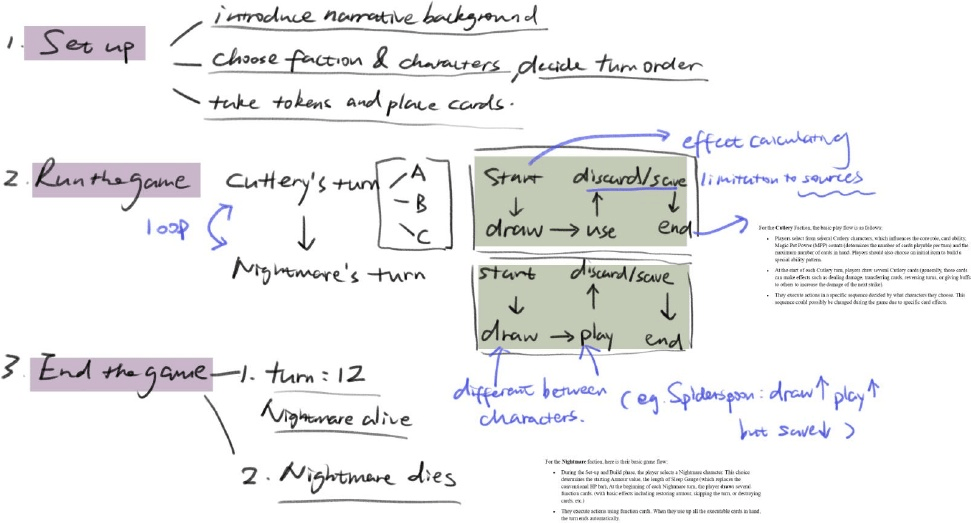 1. Set up
introduce narrative background
choose faction & characters, decide turn order
take tokens and place cards.
2. Run the game
loop
Cuttery's turn
A
B
C
Nightmare's turn
start discard/save
draw → use end
effect calculating
limitation to sources
For the Cutlery Faction, the basic play flow is as follows:
Players select from several Cutlery characters, which influences the core role, card ability,
Magic Pot Power (MPP) owned (determines the number of cards playable per turn) and the
maximum number of cards in hand. Players should also choose an initial item to build a
special ability pattern.
At the start of each Cutlery turn, players draw several Cutlery cards (generally, these cards
can make effects such as dealing damage, transferring cards, reversing turns, or giving buffs
to others to increase the damage of the next strike).
They execute actions in a specific sequence decided by what characters they choose. This
sequence could possibly be changed during the game due to specific card effects.
start discard/save
draw → play end
different between
characters.
(eg. Spiderspoon: draw↑ play↑
but save↓)
3 End the game
1. turn: 12
Nightmare alive
2. Nightmare dies
For the Nightmare faction, here is their basic game flow:
During the Set-up and Build phase, the player selects a Nightmare character. This choice
determines the starting Armour value, the length of Sleep Gauge (which replaces the
conventional HP bar). At the beginning of each Nightmare turn, the player draws several
function cards. (with basic effects including restoring armour, skipping the turn, or destroying
cards, etc.)
They execute actions using function cards. When they use up all the executable cards in hand,
the turn ends automatically.